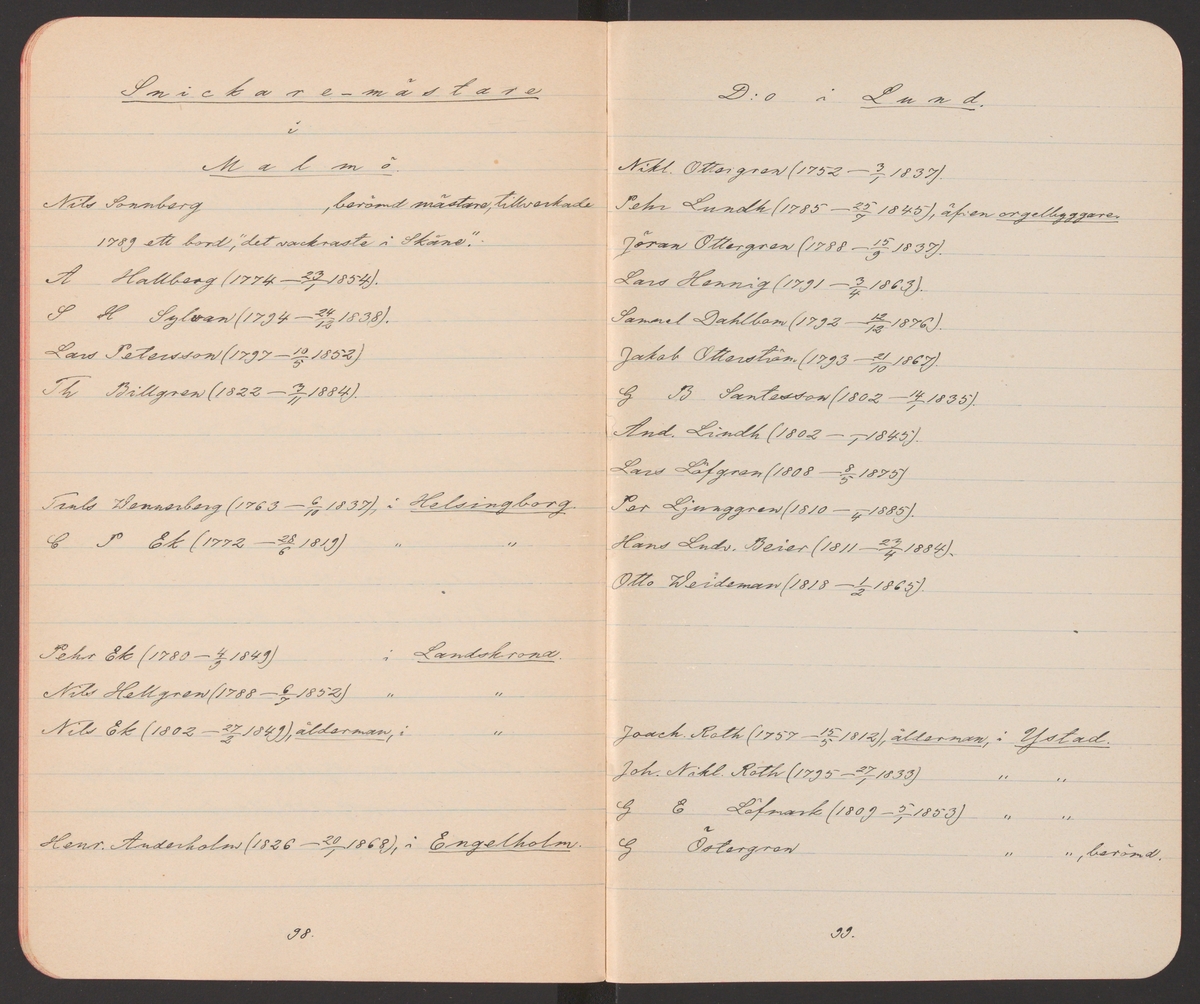 Snickare-mästare
i
Malmö.
Nils Sonnberg , berömd mästare, tillverkade
1789 ett bord, "det vackraste i Skåne".
A Hallberg (1774 — 23/1 1854).
S H Sylvan (1794 — 24/12 1838).
Lars Petersson (1797 — 10/5 1852)
Th Billgren (1822 — 3/11 1884).
Truls Wennerberg (1763 — 6/10 1837), i Helsingborg.
C P Ek (1772 — 28/6 1819) " "
Pehr Ek (1780 — 4/9 1849) i Landskrona.
Nils Hellgren (1788 — 6/7 1852) " "
Nils Ek (1802 — 27/2 1849), ålderman, i "
Henr. Anderholm (1826 — 20/1 1868), i Engelholm.
98.
D:o i Lund.
Nikl. Ottergren (1752 — 3/1 1837).
Pehr Lundh (1785 — 25/7 1845), äfven orgelbygggare.
Jöran Ottergren (1788 — 15/9 1837).
Lars Hennig (1791 — 3/4 1863).
Samuel Dahlbom (1792 — 12/12 1876).
Jakob Otterström (1793 — 21/10 1867).
G B Santesson (1802 — 14/1 1835).
And. Lindh (1802 — /1 1845).
Lars Löfgren (1808 — 8/5 1875)
Per Ljunggren (1810 — /4 1885).
Hans Ludv. Beier (1811 — 23/4 1884).
Otto Weideman (1818 — 1/2 1865).
Joach. Roth (1757 — 15/5 1812), ålderman, i Ystad.
Joh. Nikl. Roth (1795 — 27/1 1833) " "
G E Löfmark (1809 — 5/1 1853) " "
G Östergren " ", berömd.
99.